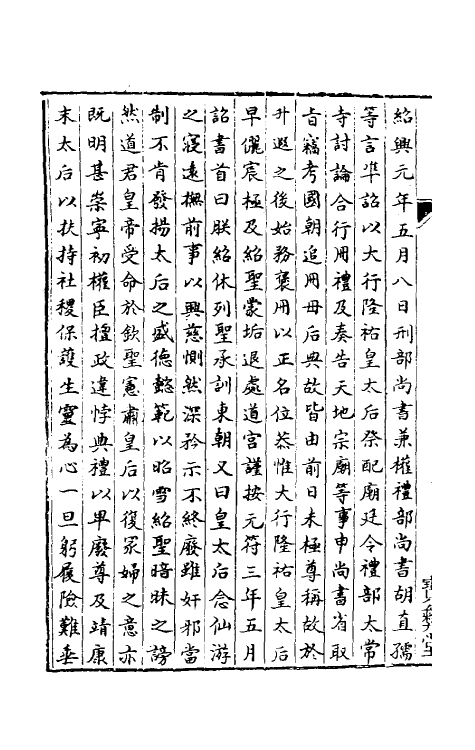 紹興元年五月八日刑部尚書兼權禮部尚書胡直孺
等言準詔以大行隆祐皇太后祭配廟廷令禮部太常
寺討論合行冊禮及奏告天地宗廟等事申尚書省取
旨竊考國朝追冊母后典故皆由前日未極尊稱故於
升遐之後始務褒冊以正名位恭惟大行隆祐皇太后
早儷宸極及紹聖蒙垢退處道宮謹按元符三年五月
詔書首曰朕紹休列聖承訓東朝又曰皇太后念仙游
之寖遠撫前事以興慈惻然深矜示不終廢雖奸邪當
制不肯發揚太后之盛德懿範以昭雪紹聖暗昧之謗
然道君皇帝受命於欽聖憲肅皇后以復冢婦之意亦
既明甚崇寧初權臣擅政違悖典禮以卑廢尊及靖康
末太后以扶持社稷保護生靈為心一旦躬履險難垂
寶彝堂